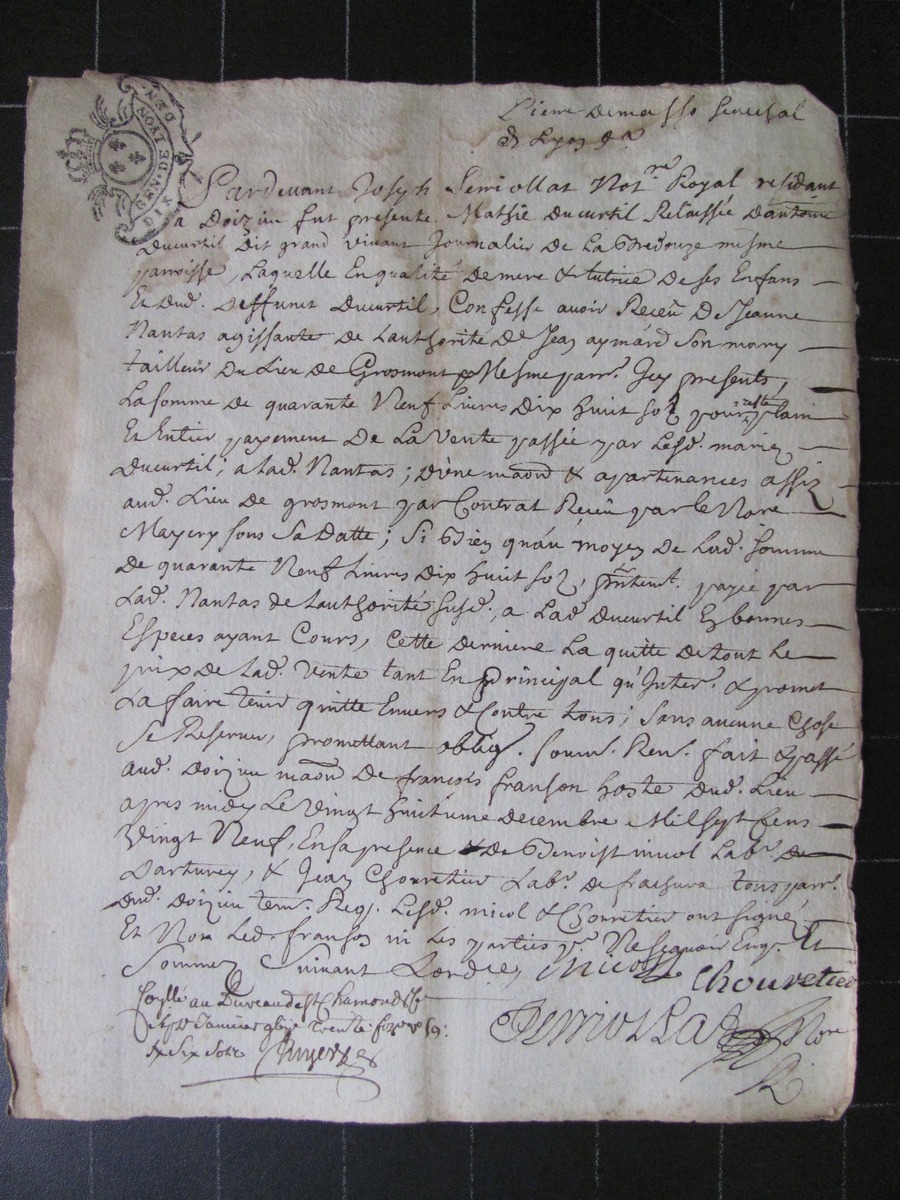 GEN. DE LYON
DIX DEN
Pierre Demasso senechal
de Lyon &a
Pardevant Joseph Perriollat Notre Royal residant
a Doizieu fut presente Mathie Ducurtil Relaissée Dantoine
Ducurtil Dit grand vivant Journalier de La Bredouze mesme
parroisse, Laquelle En qualité de mere & tutrice de ses Enfans
Et dud. Deffunct Ducurtil, Confesse avoir Receü De Jeanne
Nantas agissante de Lauthorité De Jean aymard Son mary
tailleur Du Lieu de Grosmont Mesme parr. Icy presents,
La somme de quarante Neuf Livres Dix huit sol pour reste plain
Et Entier payement De La Vente passée par Lesd. mariez
Ducurtil, a Lad. Nantas; D'une maon & apartenances assiz
aud. Lieu de grosmont par Contrat Receü par le Nore
Mayery sous Sa Datte; Si Bien qu'au moyen De Lad. somme
De quarante Neuf Livres Dix huit sol, pntemt. payée par
Lad. Nantas de Lauthorité susd. a Lad Ducurtil En bonnes
Especes ayant Cours, Cette derniere La quitte de tout Le
prix de Lad. Vente tant En Principal qu'Inter. & promet
La faire tenir quitte Envers & Contre tous; Sans aucune Chose
Se Reserver, promettant oblig. soum. Ren. fait & passé
aud. Doizieu maon De françois franson hoste Dud. Lieu
apres midy Le Vingt huitieme decembre Mil sept Cens
Vingt Neuf, En sa presence & De Benoist nicol Labr. De
& Jean Chouretier Labr. de frachura tous parr.
Dud. doizieu tem. Req. Lesd. nicol & Chouretier ont signé
Et Non Led. franson ni Les parties pr. Ne sçavoir Enq. Et
Sommez Suivant Lordce, Nicol
Chouretier
Collé au Bureau de St Chamond
Janvier trente
& six sols
Perriollat Nore
R